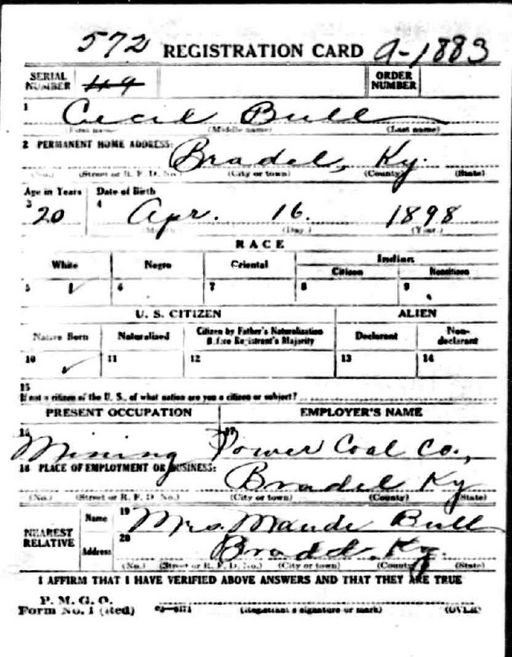 572 REGISTRATION CARD A-1883
SERIAL NUMBER 49 ORDER NUMBER
1 Cecil Bull
(First name) (Middle name) (Last name)
2 PERMANENT HOME ADDRESS: Bradel, Ky.
(No.) (Street or R. F. D. No.) (City or town) (County) (State)
Age in Years Date of Birth
3 20 4 Apr. 16. 1898
(Month) (Day.) (Year.)
RACE
White Negro Oriental Indian
Citizen Noncitizen
5 6 7 8 9
U. S. CITIZEN ALIEN
Native Born Naturalized Citizen by Father's Naturalization Before Registrant's Majority Declarant Non-declarant
10 ✓ 11 12 13 14
15
If not a citizen of the U. S., of what nation are you a citizen or subject?
PRESENT OCCUPATION EMPLOYER'S NAME
16 Mining 17 Power Coal Co.,
18 PLACE OF EMPLOYMENT OR BUSINESS: Bradel Ky
(No.) (Street or R. F. D. No.) (City or town) (County) (State)
NEAREST RELATIVE Name 19 Mrs. Maude Bull
Address 20 Bradel, Ky.
(No.) (Street or R. F. D. No.) (City or town) (County) (State)
I AFFIRM THAT I HAVE VERIFIED ABOVE ANSWERS AND THAT THEY ARE TRUE
P. M. G. O.
Form No. 1 (Red) (Registrant's signature or mark) (OVER)